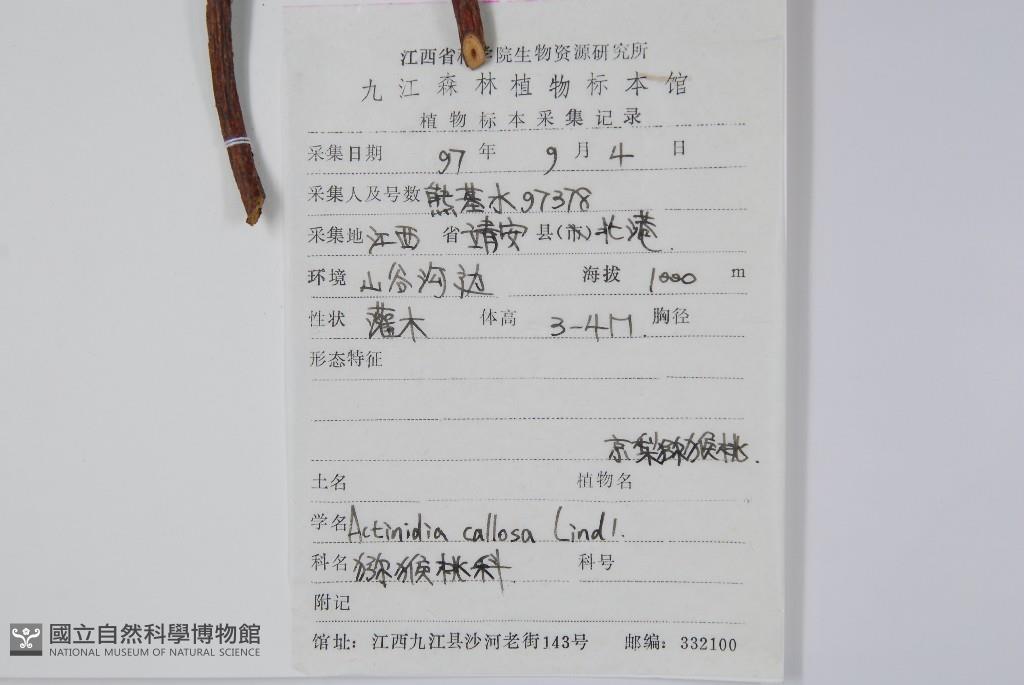 江西省科学院生物资源研究所
九江森林植物标本馆
植物标本采集记录
采集日期 97 年 9 月 4 日
采集人及号数 熊基水 97378
采集地 江西 省 靖安 县(市) 北港.
环境 山谷沟边 海拔 1000 m
性状 灌木 体高 3-4M. 胸径
形态特征
京梨猕猴桃.
土名 植物名
学名 Actinidia callosa Lindl.
科名 猕猴桃科 科号
附记
馆址：江西九江县沙河老街143号 邮编：332100
國立自然科學博物館
NATIONAL MUSEUM OF NATURAL SCIENCE